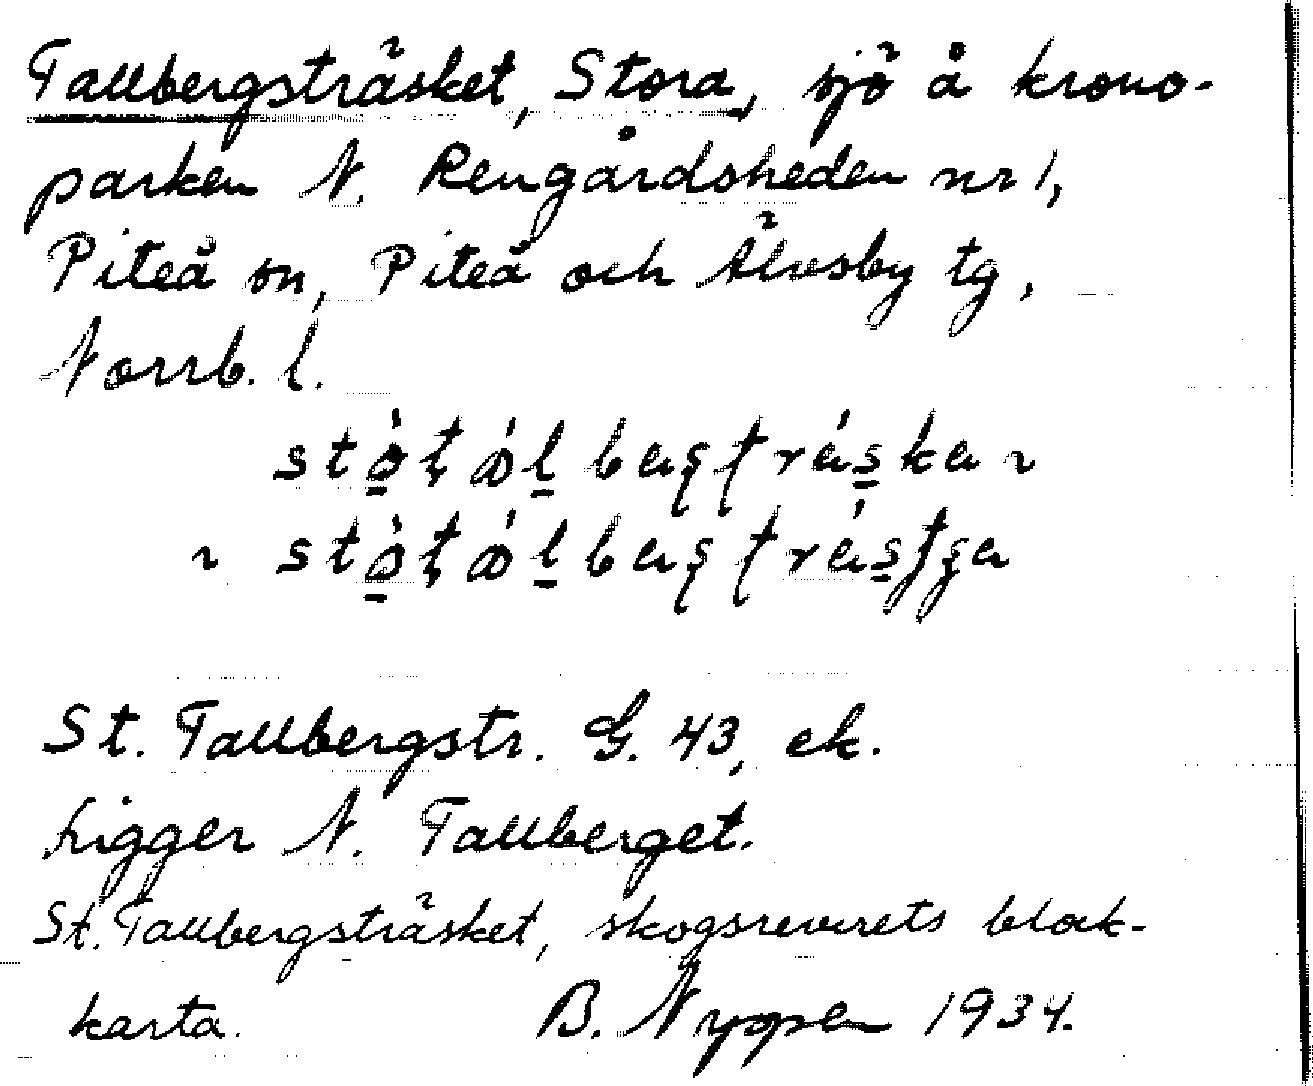 Tallbergsträsket, Stora, sjö å krono-
parken N. Rengårdsheden nr 1,
Piteå sn, Piteå och Älvsby tg,
Norrb. l.
St. Tallbergstr. G. 43, ek.
Ligger N. Tallberget.
St. Tallbergsträsket, skogsrevirets block-
karta. B. Nyppen 1934.